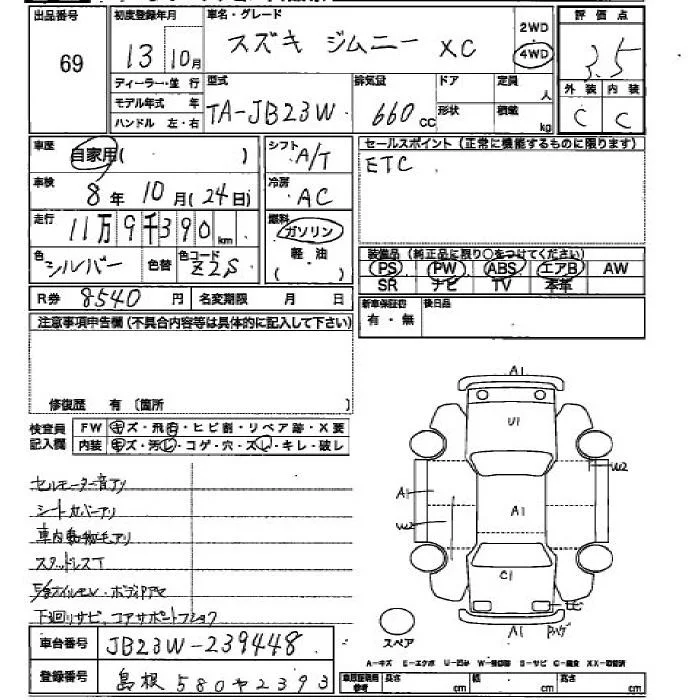 出品番号 初度登録年月 車名・グレード 評価点
69 13 10月 スズキ ジムニー XC 2WD 4WD 3.5
ディーラー・並行 型式 排気量 ドア 定員 人 外装 内装
モデル年式 年 TA-JB23W 660cc 形状 積載 kg C C
ハンドル 左・右
車歴 自家用( ) シフト A/T セールスポイント(正常に機能するものに限ります)
車検 8年10月(24日) 冷房 AC ETC
走行 11万9千390km 燃料 ガソリン
色 シルバー 色替 色コード Z2S 軽油 ( ) 装備品(純正品に限り○をつけてください)
PS PW ABS エアB AW
SR ナビ TV 本革
R券 8540円 名変期限 月 日 新車保証書 有・無 後日品
注意事項申告欄(不具合内容等は具体的に記入して下さい)
修復歴 有 〔箇所 〕
検査員記入欄 FW キズ・飛石・ヒビ割・リペア跡・X要
内装 キズ・汚レ・コゲ・穴・スレ・キレ・破レ
A1
U1
W2
A1
A1
W2
C1
A1
セルモーター音アリ
シートカバーアリ
車内動物毛アリ
スタッドレスT
下廻リサビ、コアサポートフショク
スペア
車台番号 JB23W-239448
登録番号 島根 580ヤ2393
A=キズ E=エクボ U=凹み S=サビ C=腐食
長さ cm 幅 cm 高さ cm